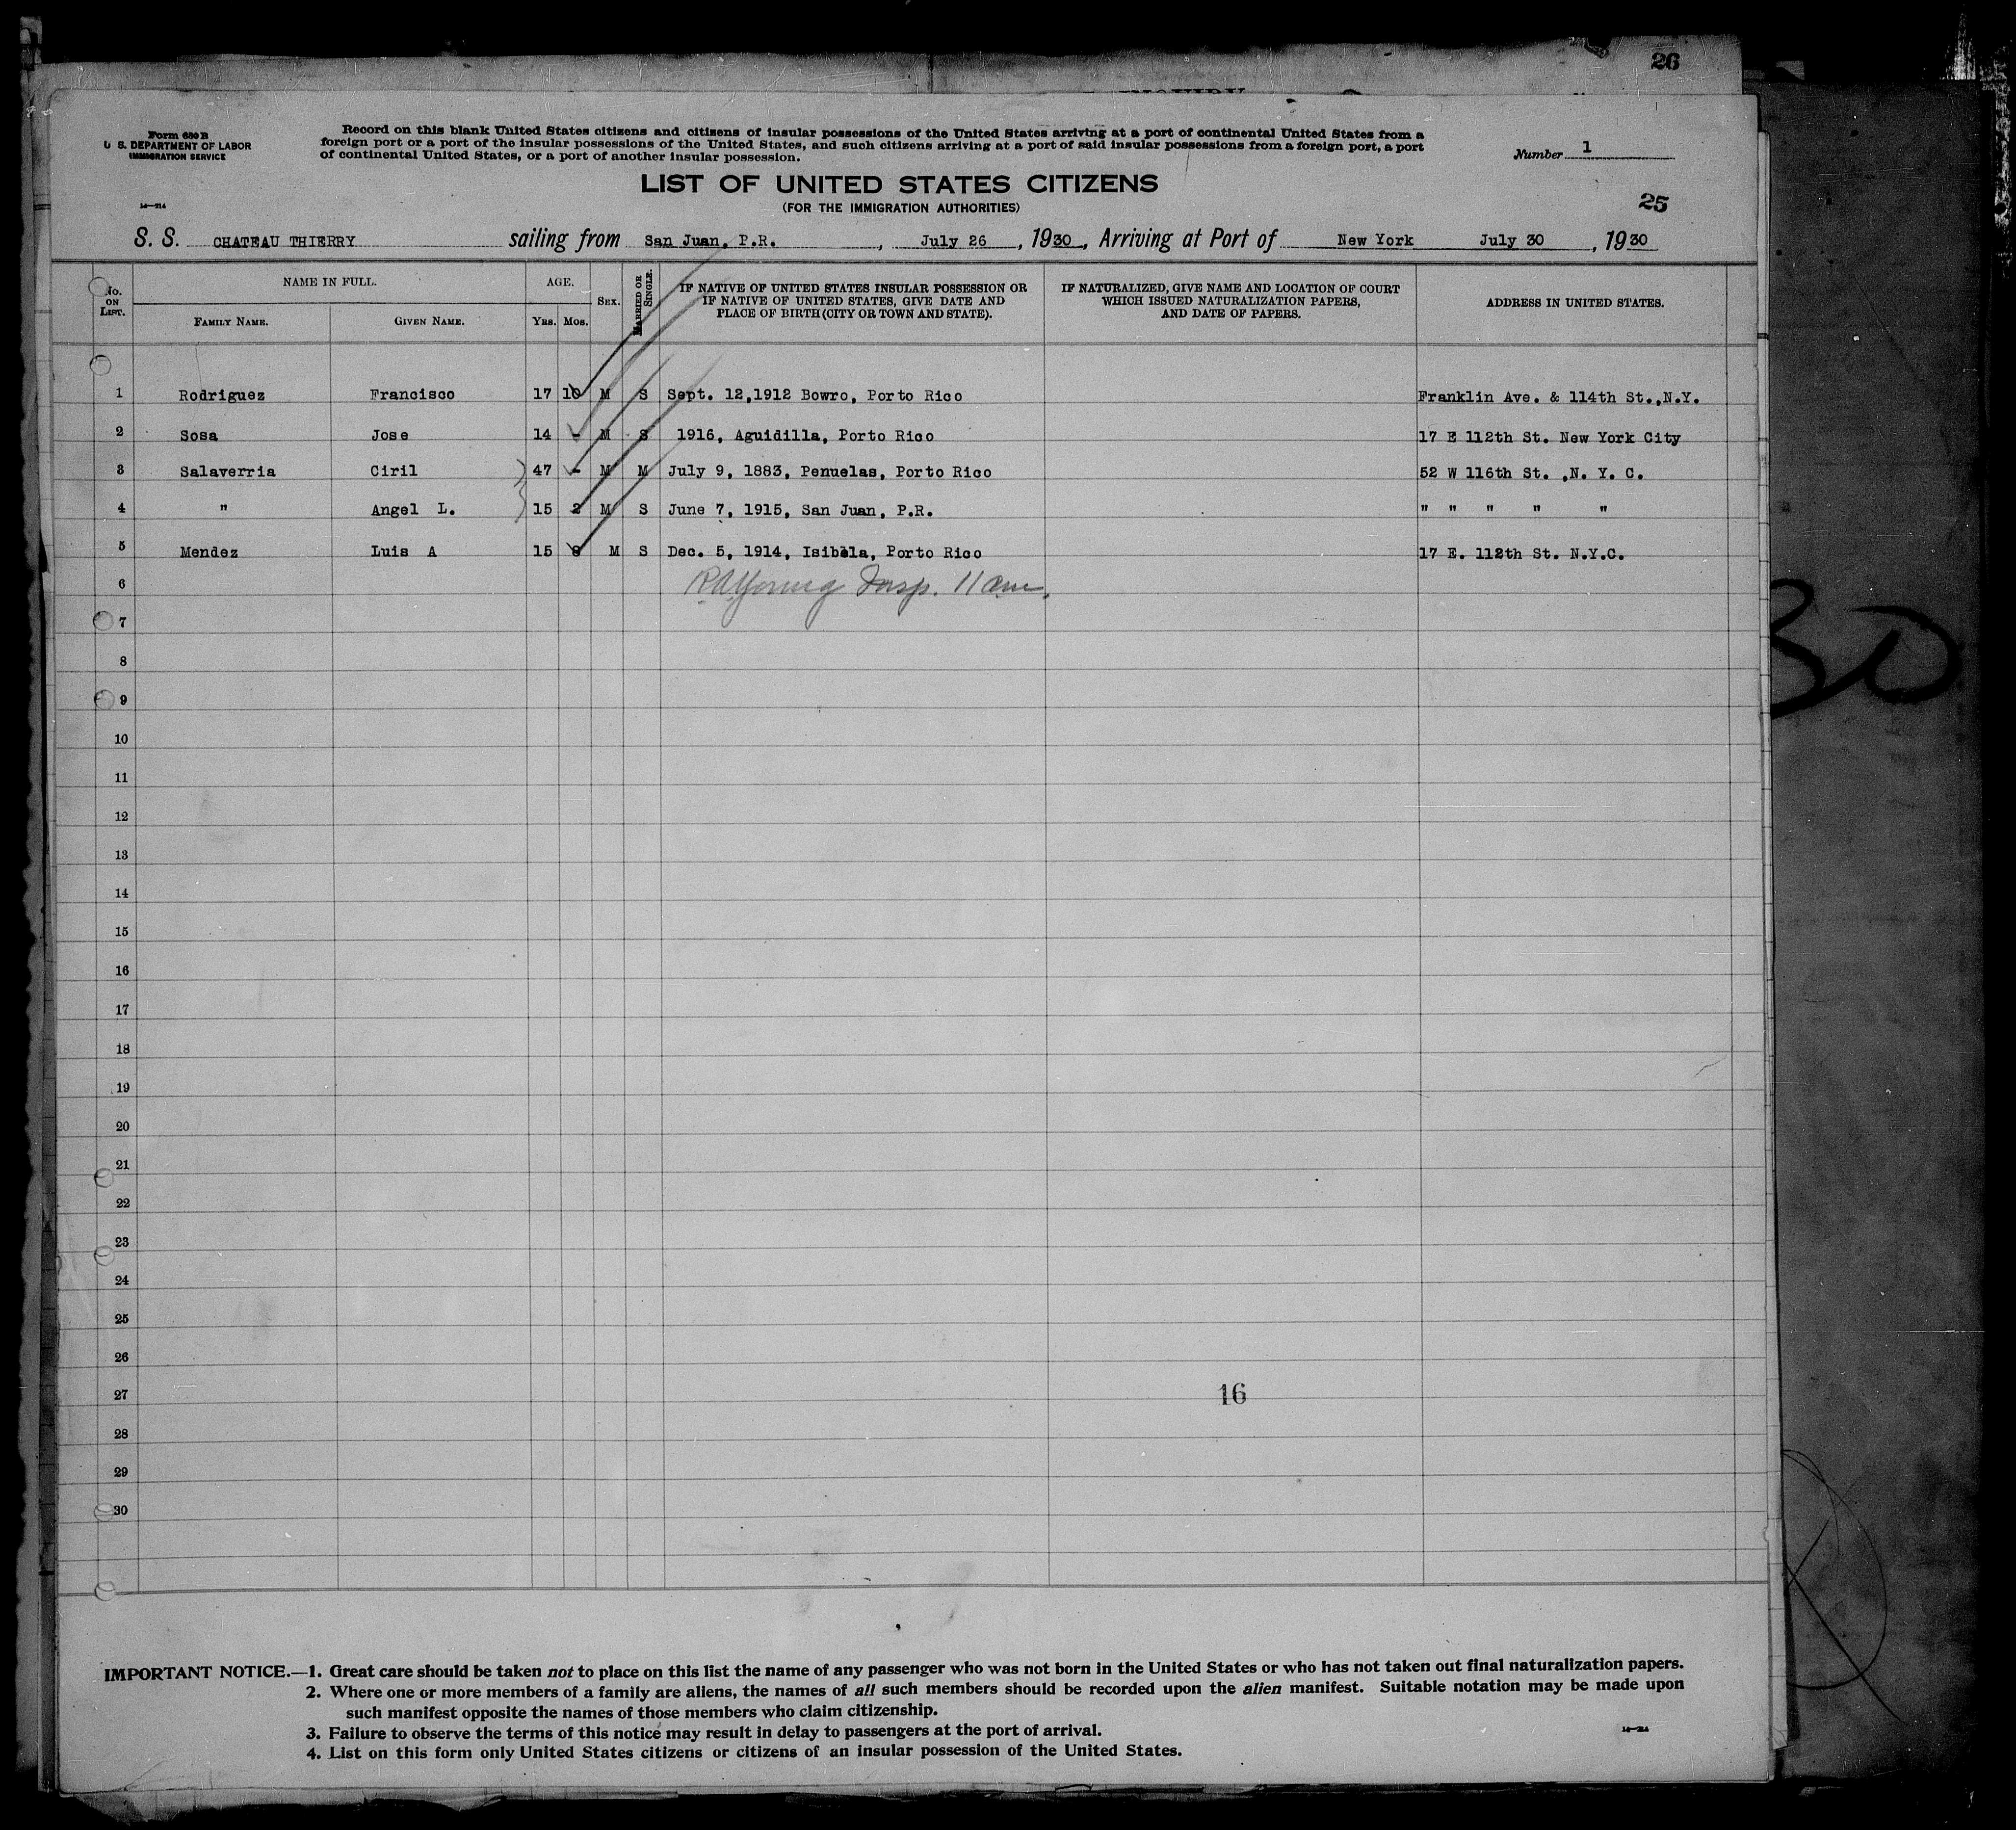 26
Form 630 B
U. S. DEPARTMENT OF LABOR
IMMIGRATION SERVICE
Record on this blank United States citizens and citizens of insular possessions of the United States arriving at a port of continental United States from a
foreign port or a port of the insular possessions of the United States, and such citizens arriving at a port of said insular possessions from a foreign port, a port
of continental United States, or a port of another insular possession.
Number 1
LIST OF UNITED STATES CITIZENS
(FOR THE IMMIGRATION AUTHORITIES)
25
S. S. CHATEAU THIERRY sailing from San Juan, P.R. , July 26 , 1930 , Arriving at Port of New York July 30 , 1930
No. ON LIST.
NAME IN FULL.
FAMILY NAME. GIVEN NAME.
AGE.
YRS. MOS.
SEX.
MARRIED OR SINGLE.
IF NATIVE OF UNITED STATES INSULAR POSSESSION OR
IF NATIVE OF UNITED STATES, GIVE DATE AND
PLACE OF BIRTH (CITY OR TOWN AND STATE).
IF NATURALIZED, GIVE NAME AND LOCATION OF COURT
WHICH ISSUED NATURALIZATION PAPERS,
AND DATE OF PAPERS.
ADDRESS IN UNITED STATES.
1 Rodriguez Francisco 17 10 M S Sept. 12,1912 Bowro, Porto Rico Franklin Ave. & 114th St.,N.Y.
2 Sosa Jose 14 - M S 1916, Aguidilla, Porto Rico 17 E 112th St. New York City
3 Salaverria Ciril 47 - M M July 9, 1883, Penuelas, Porto Rico 52 W 116th St. ,N. Y. C.
4 " Angel L. 15 2 M S June 7, 1915, San Juan, P.R. " " " " "
5 Mendez Luis A 15 8 M S Dec. 5, 1914, Isibela, Porto Rico 17 E. 112th St. N.Y.C.
6 RAYoung Insp. 11 am.
7
8
9
10
11
12
13
14
15
16
17
18
19
20
21
22
23
24
25
26
27 16
28
29
30
IMPORTANT NOTICE.—1. Great care should be taken not to place on this list the name of any passenger who was not born in the United States or who has not taken out final naturalization papers.
2. Where one or more members of a family are aliens, the names of all such members should be recorded upon the alien manifest. Suitable notation may be made upon
such manifest opposite the names of those members who claim citizenship.
3. Failure to observe the terms of this notice may result in delay to passengers at the port of arrival.
4. List on this form only United States citizens or citizens of an insular possession of the United States.
30